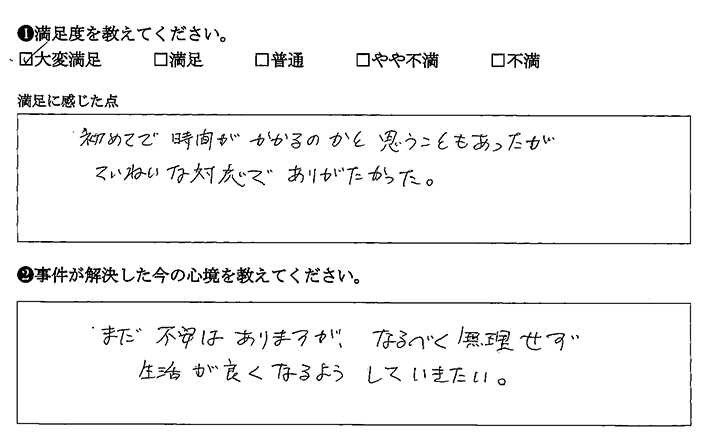 ❶満足度を教えてください。
☑大変満足 □満足 □普通 □やや不満 □不満
満足に感じた点
初めてで 時間が かかるのかと 思うこともあったが
ていねいな対応で ありがたかった。
❷事件が解決した今の心境を教えてください。
まだ 不安は ありますが、なるべく 無理せず
生活が良くなるよう していきたい。